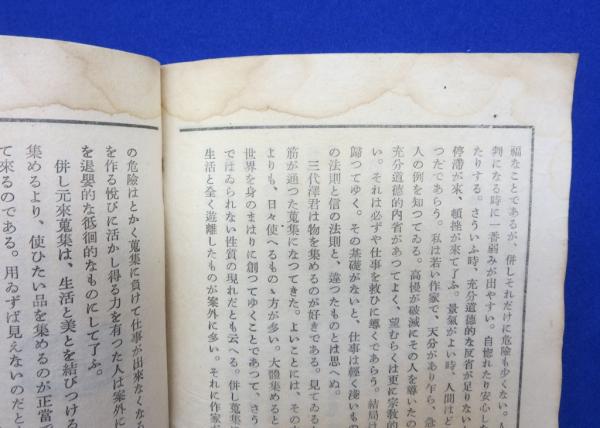 福なことであるが、併しそれだけに危險も少くない。
判になる時に一番弱みが出やすい。自惚れたり安心した
たりする。さういふ時、充分道德的な反省が足りないと
停滯が來、頓挫が來て了ふ。景氣がよい時、人間はど
つだであらう。私は若い作家で、天分があり乍ら、急
人の例を知つてゐる。高慢が破滅にその人を導いたの
充分道德的内省があつてよく、望むらくは更に宗教的
い。それは必ずや仕事を救ひに導くであらう。結局は
歸つてゆく。その基礎がないと、仕事は輕く淺いもの
の法則と信の法則と、違つたものとは思へぬ。
三代澤君は物を集めるのが好きである。見てゐると
筋が通つた蒐集になつてきた。よいことには、その
よりも、日々使へるものゝ方が多い。大體集めると
世界を身のまはりに創つてゆくことであつて、さう
ではゐられない性質の現れだとも云へる。併し蒐集
生活と全く遊離したものが案外に多い。それに作家が
の危險はとかく蒐集に負けて仕事が出來なくなる
を作る悅びに活かし得る力を有つた人は案外に
を退嬰的な低徊的なものにして了ふ。
併し元來蒐集は、生活と美とを結びつける
集めるより、使ひたい品を集めるのが正當で
て來るのである。用ゐずば見えないのだと